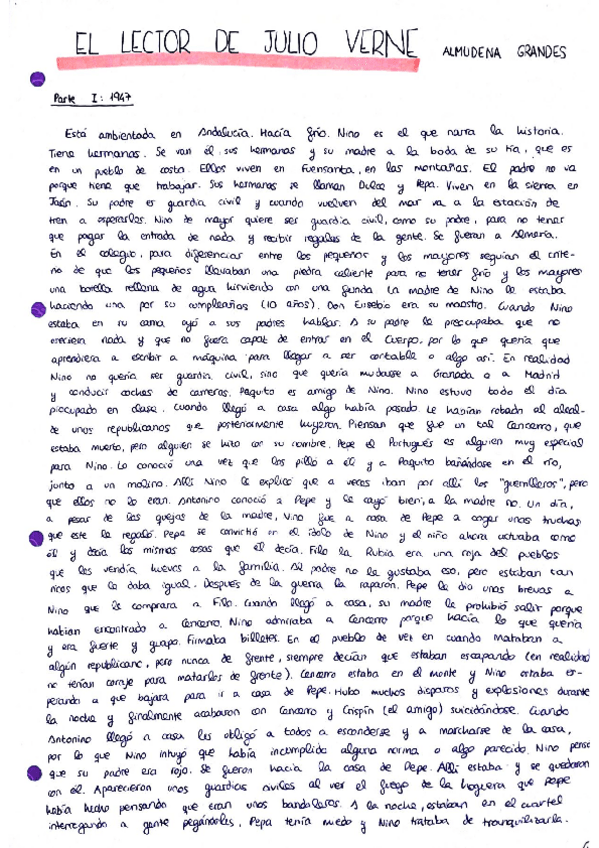 EL LECTOR DE JULIO VERNE ALMUDENA GRANDES
Parte I: 1947
Está ambientada en Andalucía. Hacía frío. Nino es el que narra la historia.
Tiene hermanas. Se van él, sus hermanas y su madre a la boda de su tía, que es
en un pueblo de costa. Ellos viven en Fuensanta, en las montañas. El padre no va
porque tiene que trabajar. Sus hermanas se llaman Dulce y Pepa. Viven en la sierra en
Jaén. Su padre es guardia civil y cuando vuelven del mar va a la estación de
tren a esperarlos. Nino de mayor quiere ser guardia civil, como su padre, para no tener
que pagar la entrada de nada y recibir regalos de la gente. Se fueron a Almería.
En el colegio, para diferenciar entre los pequeños y los mayores seguían el crite-
rio de que los pequeños llevaban una piedra caliente para no tener frío y los mayores
una botella rellena de agua hirviendo con una funda. La madre de Nino le estaba
haciendo una por su cumpleaños (10 años). Don Eusebio era su maestro. Cuando Nino
estaba en su cama oyó a sus padres hablar. A su padre le preocupaba que no
creciera nada y que no fuera capaz de entrar en el Cuerpo, por lo que quería que
aprendiera a escribir a máquina para llegar a ser contable o algo así. En realidad
Nino no quería ser guardia civil, sino que quería mudarse a Granada o a Madrid
y conducir coches de carreras. Paquito es amigo de Nino. Nino estuvo todo el día
preocupado en clase. Cuando llegó a casa algo había pasado. Le habían robado al alcal-
de unos republicanos que posteriormente huyeron. Piensan que fue un tal Cencerro, que
estaba muerto, pero alguien se hizo con su nombre. Pepe el Portugués es alguien muy especial
para Nino. Lo conoció una vez que los pilló a él y a Paquito bañándose en el río,
junto a un molino. Allí Nino le explicó que a veces iban por allí los "guerrilleros", pero
que ellos no lo eran. Antonino conoció a Pepe y le cayó bien, a la madre no. Un día,
a pesar de las quejas de la madre, Nino fue a casa de Pepe a coger unas truchas
que este le regaló. Pepe se convirtió en el ídolo de Nino y el niño ahora actuaba como
él y decía las mismas cosas que él decía. Filo la Rubia era una roja del pueblo
que les vendía huevos a la familia. Al padre no le gustaba eso, pero estaban tan
ricos que le daba igual. Después de la guerra la raparon. Pepe le dio unas brevas a
Nino que le comprara a Filo. Cuando llegó a casa, su madre le prohibió salir porque
habían encontrado a Cencerro. Nino admiraba a Cencerro porque hacía lo que quería
y era fuerte y guapo. Firmaba billetes. En el pueblo de vez en cuando mataban a
algún republicano, pero nunca de frente, siempre decían que estaban escapando (en realidad
no tenían coraje para matarlos de frente). Cencerro estaba en el monte y Nino estaba es-
perando a que bajara para ir a casa de Pepe. Hubo muchos disparos y explosiones durante
la noche y finalmente acabaron con Cencerro y Crispín (el amigo) suicidándose. Cuando
Antonino llegó a casa les obligó a todos a esconderse y a marcharse de la casa,
por lo que Nino intuyó que había incumplido alguna norma o algo parecido. Nino pensó
que su padre era rojo. Se fueron hacia la casa de Pepe. Allí estaba y se quedaron
con él. Aparecieron unos guardias civiles al ver el fuego de la hoguera que Pepe
había hecho pensando que eran unos bandoleros. A la noche, estaban en el cuartel
interrogando a gente pegándoles. Pepa tenía miedo y Nino trataba de tranquilizarla.